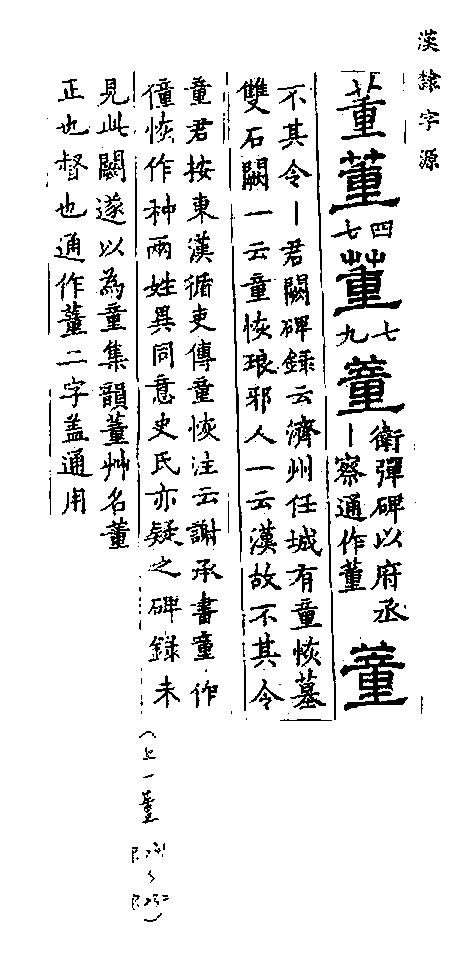 漢隸字源
董董四七董七九蕫衛彈碑以府丞｜察通作董蕫
不其令｜君闕碑錄云濟州任城有童恢墓
雙石闕一云童恢琅邪人一云漢故不其令
童君按東漢循吏傳童恢注云謝承書童作
僮恢作种兩姓異同意史氏亦疑之碑錄未
見此闕遂以為童集韻董艸名董
正也督也通作蕫二字蓋通用
(上一董